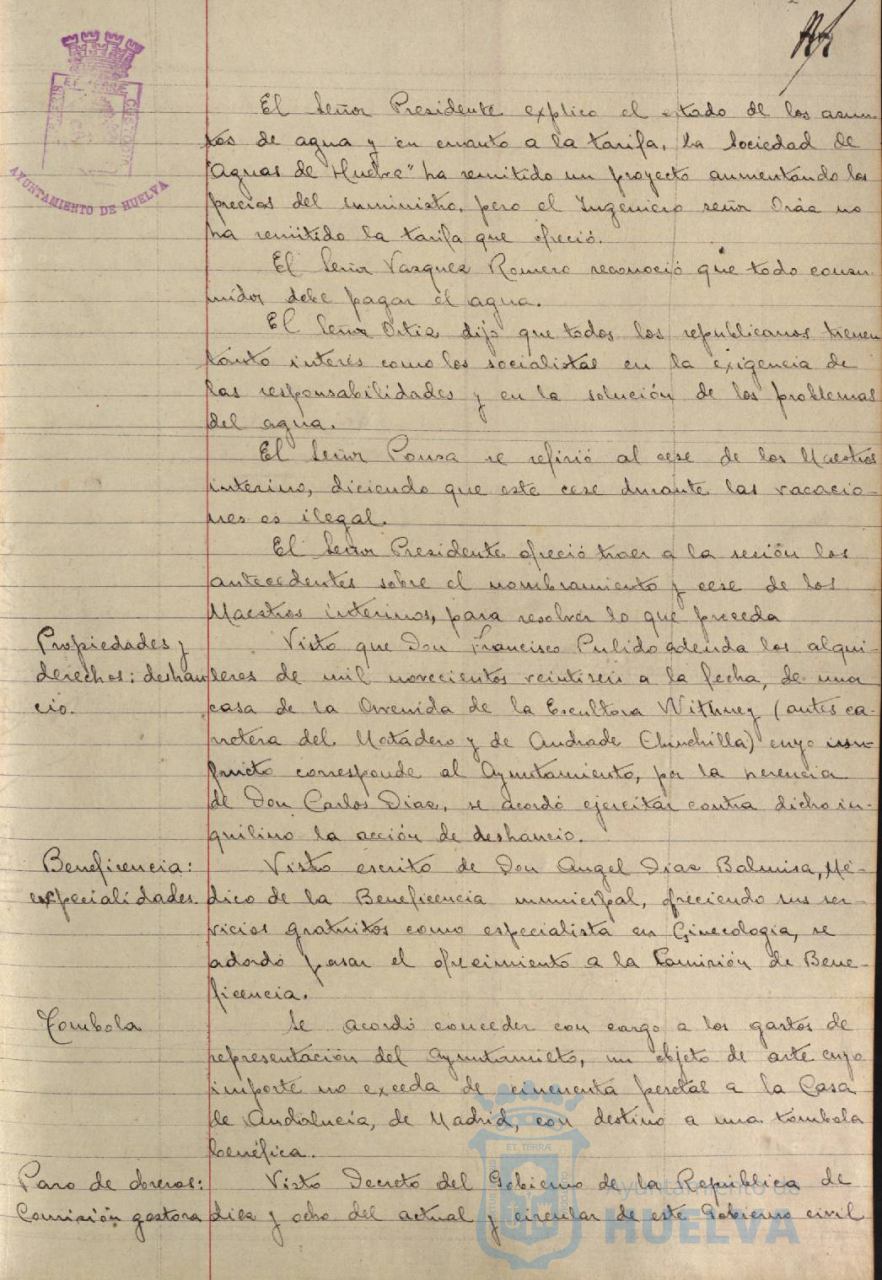 AYUNTAMIENTO DE HUELVA
El Señor Presidente explico el estado de los asun-
tos de agua y en cuanto a la tarifa, la Sociedad de
"Aguas de Huelva" ha remitido un proyecto aumentando los
precios del suministro, pero el Ingeniero señor Oráa no
ha remitido la tarifa que ofreció.
El Señor Vazquez Romero reconoció que todo consu-
midor debe pagar el agua.
El Señor Ortiz dijo que todos los republicanos tienen
tanto interés como los socialistas en la exigencia de
las responsabilidades y en la solución de los problemas
del agua.
El Señor Ponsa se refirió al cese de los Maestros
interino, diciendo que este cese durante las vacacio-
nes es ilegal.
El Señor Presidente ofreció traer a la sesión los
antecedentes sobre el nombramiento y cese de los
Maestros interinos, para resolver lo que proceda
Propiedades y
derechos: deshau
cio.
Visto que Don Francisco Pulido adeuda los alqui-
leres de mil novecientos veintiseis a la fecha, de una
casa de la Avenida de la Escultora Withney (antes ca-
rretera del Matadero y de Andrade Chinchilla) cuyo usu-
fructo corresponde al Ayuntamiento, por la herencia
de Don Carlos Diaz, se acordó ejercitar contra dicho in-
quilino la acción de deshaucio.
Beneficencia:
especialidades.
Visto escrito de Don Angel Diaz Balmisa, Mé-
dico de la Beneficencia municipal, ofreciendo sus ser-
vicios gratuitos como especialista en Ginecologia, se
adordó pasar el ofrecimiento a la Comisión de Bene-
ficencia.
Tombola
Se acordó conceder con cargo a los gastos de
representación del Ayuntamieto, un objeto de arte cuyo
importe no exceda de cincuenta pesetas a la Casa
de Andalucía, de Madrid, con destino a una tombola
benéfica.
Paro de obreros:
Comisión gestora
Visto Decreto del Gobierno de la República de
diez y ocho del actual y circular de este Gobierno civil
ET TERRÆ
Ayuntamiento de
HUELVA